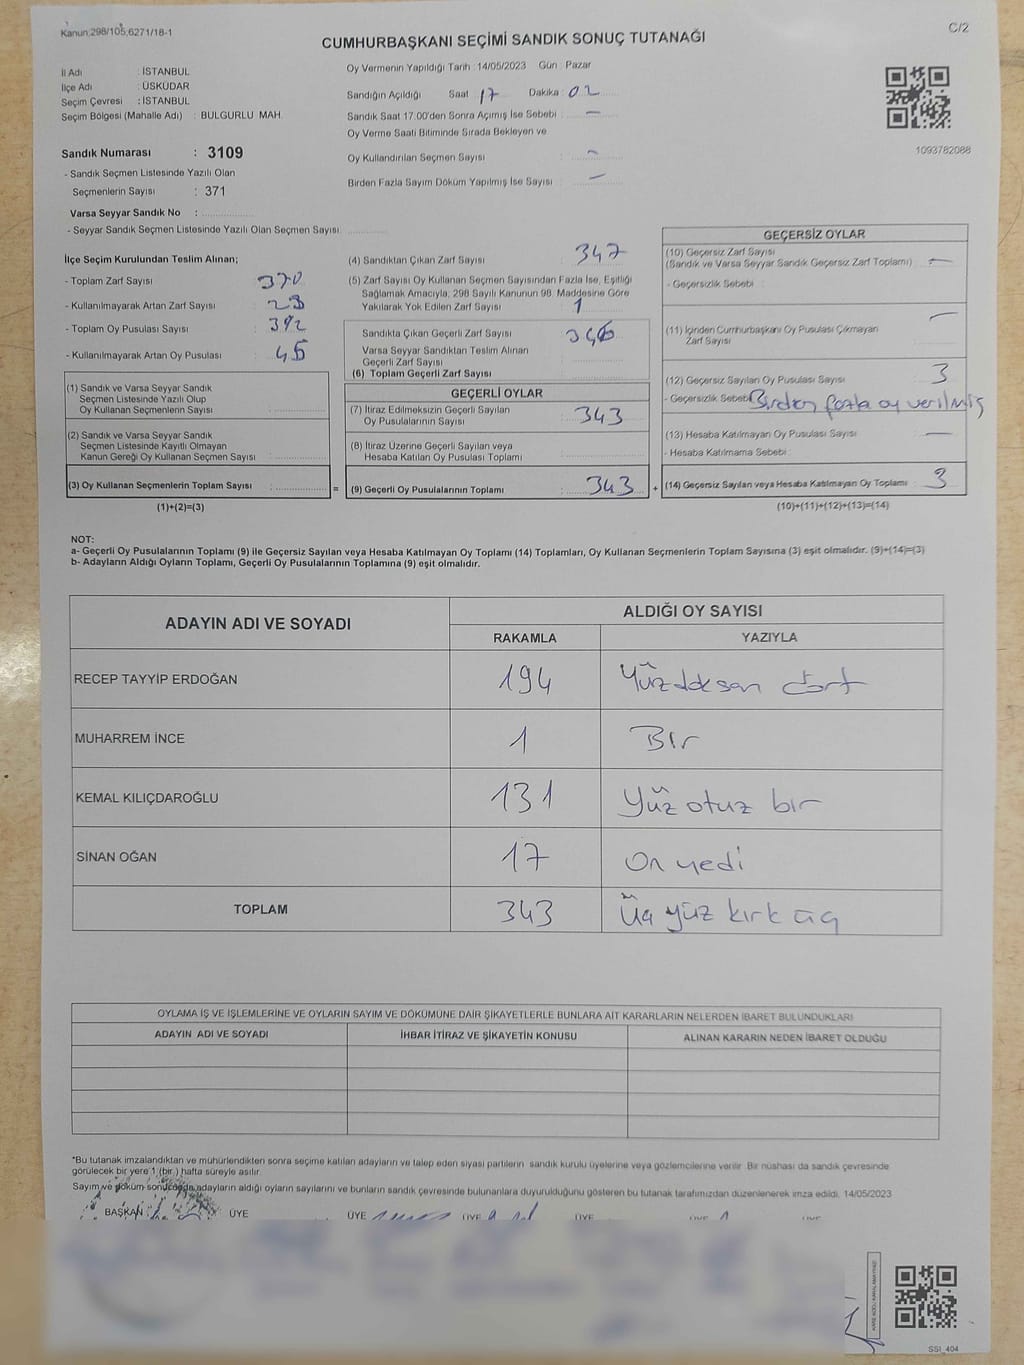 Kanun;298/105;6271/18-1
C/2
CUMHURBAŞKANI SEÇİMİ SANDIK SONUÇ TUTANAĞI
İl Adı : İSTANBUL
İlçe Adı : ÜSKÜDAR
Seçim Çevresi : İSTANBUL
Seçim Bölgesi (Mahalle Adı) : BULGURLU MAH.
Sandık Numarası : 3109
- Sandık Seçmen Listesinde Yazılı Olan
Seçmenlerin Sayısı : 371
Varsa Seyyar Sandık No :
- Seyyar Sandık Seçmen Listesinde Yazılı Olan Seçmen Sayısı:
Oy Vermenin Yapıldığı Tarih : 14/05/2023 Gün : Pazar
Sandığın Açıldığı Saat 17 Dakika : 02
Sandık Saat 17:00'den Sonra Açımış İse Sebebi : -
Oy Verme Saati Bitiminde Sırada Bekleyen ve
Oy Kullandırılan Seçmen Sayısı : -
Birden Fazla Sayım Döküm Yapılmış İse Sayısı : -
1093782088
İlçe Seçim Kurulundan Teslim Alınan;
- Toplam Zarf Sayısı : 370
- Kullanılmayarak Artan Zarf Sayısı : 23
- Toplam Oy Pusulası Sayısı : 392
- Kullanılmayarak Artan Oy Pusulası : 45
(1) Sandık ve Varsa Seyyar Sandık
Seçmen Listesinde Yazılı Olup
Oy Kullanan Seçmenlerin Sayısı :
(2) Sandık ve Varsa Seyyar Sandık
Seçmen Listesinde Kayıtlı Olmayan
Kanun Gereği Oy Kullanan Seçmen Sayısı :
(3) Oy Kullanan Seçmenlerin Toplam Sayısı :
(1)+(2)=(3)
(4) Sandıktan Çıkan Zarf Sayısı : 347
(5) Zarf Sayısı Oy Kullanan Seçmen Sayısından Fazla İse, Eşitliği
Sağlamak Amacıyla; 298 Sayılı Kanunun 98. Maddesine Göre
Yakılarak Yok Edilen Zarf Sayısı : 1
Sandıkta Çıkan Geçerli Zarf Sayısı : 346
Varsa Seyyar Sandıktan Teslim Alınan
Geçerli Zarf Sayısı :
(6) Toplam Geçerli Zarf Sayısı :
GEÇERLİ OYLAR
(7) İtiraz Edilmeksizin Geçerli Sayılan
Oy Pusulalarının Sayısı : 343
(8) İtiraz Üzerine Geçerli Sayılan veya
Hesaba Katılan Oy Pusulası Toplamı :
= (9) Geçerli Oy Pusulalarının Toplamı : 343 +
GEÇERSİZ OYLAR
(10) Geçersiz Zarf Sayısı
(Sandık ve Varsa Seyyar Sandık Geçersiz Zarf Toplamı) : -
- Geçersizlik Sebebi :
(11) İçinden Cumhurbaşkanı Oy Pusulası Çıkmayan
Zarf Sayısı : -
(12) Geçersiz Sayılan Oy Pusulası Sayısı : 3
- Geçersizlik Sebebi Birden fazla oy verilmiş
(13) Hesaba Katılmayan Oy Pusulası Sayısı : -
- Hesaba Katılmama Sebebi :
(14) Geçersiz Sayılan veya Hesaba Katılmayan Oy Toplamı : 3
(10)+(11)+(12)+(13)=(14)
NOT:
a- Geçerli Oy Pusulalarının Toplamı (9) ile Geçersiz Sayılan veya Hesaba Katılmayan Oy Toplamı (14) Toplamları, Oy Kullanan Seçmenlerin Toplam Sayısına (3) eşit olmalıdır. (9)+(14)=(3)
b- Adayların Aldığı Oyların Toplamı, Geçerli Oy Pusulalarının Toplamına (9) eşit olmalıdır.
ADAYIN ADI VE SOYADI
ALDIĞI OY SAYISI
RAKAMLA YAZIYLA
RECEP TAYYİP ERDOĞAN 194 Yüzdoksan dört
MUHARREM İNCE 1 Bir
KEMAL KILIÇDAROĞLU 131 Yüz otuz bir
SİNAN OĞAN 17 On yedi
TOPLAM 343 Üç yüz kırk üç
OYLAMA İŞ VE İŞLEMLERİNE VE OYLARIN SAYIM VE DÖKÜMÜNE DAİR ŞİKAYETLERLE BUNLARA AİT KARARLARIN NELERDEN İBARET BULUNDUKLARI
ADAYIN ADI VE SOYADI İHBAR İTİRAZ VE ŞİKAYETİN KONUSU ALINAN KARARIN NEDEN İBARET OLDUĞU
*Bu tutanak imzalandıktan ve mühürlendikten sonra seçime katılan adayların ve talep eden siyasi partilerin sandık kurulu üyelerine veya gözlemcilerine verilir. Bir nüshası da sandık çevresinde
görülecek bir yere 1 (bir ) hafta süreyle asılır.
Sayım ve döküm sonucunda adayların aldığı oyların sayılarını ve bunların sandık çevresinde bulunanlara duyurulduğunu gösteren bu tutanak tarafımızdan düzenlenerek imza edildi. 14/05/2023
BAŞKAN ÜYE ÜYE ÜYE ÜYE ÜYE ÜYE
KARE KODU KARALAMAYINIZ!
SSI_404